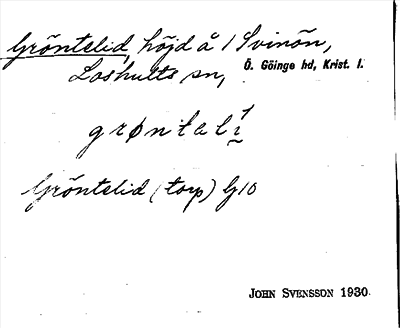 Gröntelid, höjd å 1 Svinön,
Loshults sn, Ö. Göinge hd, Krist. l.
grøntalí̯
Gröntelid (torp) G10
JOHN SVENSSON 1930.